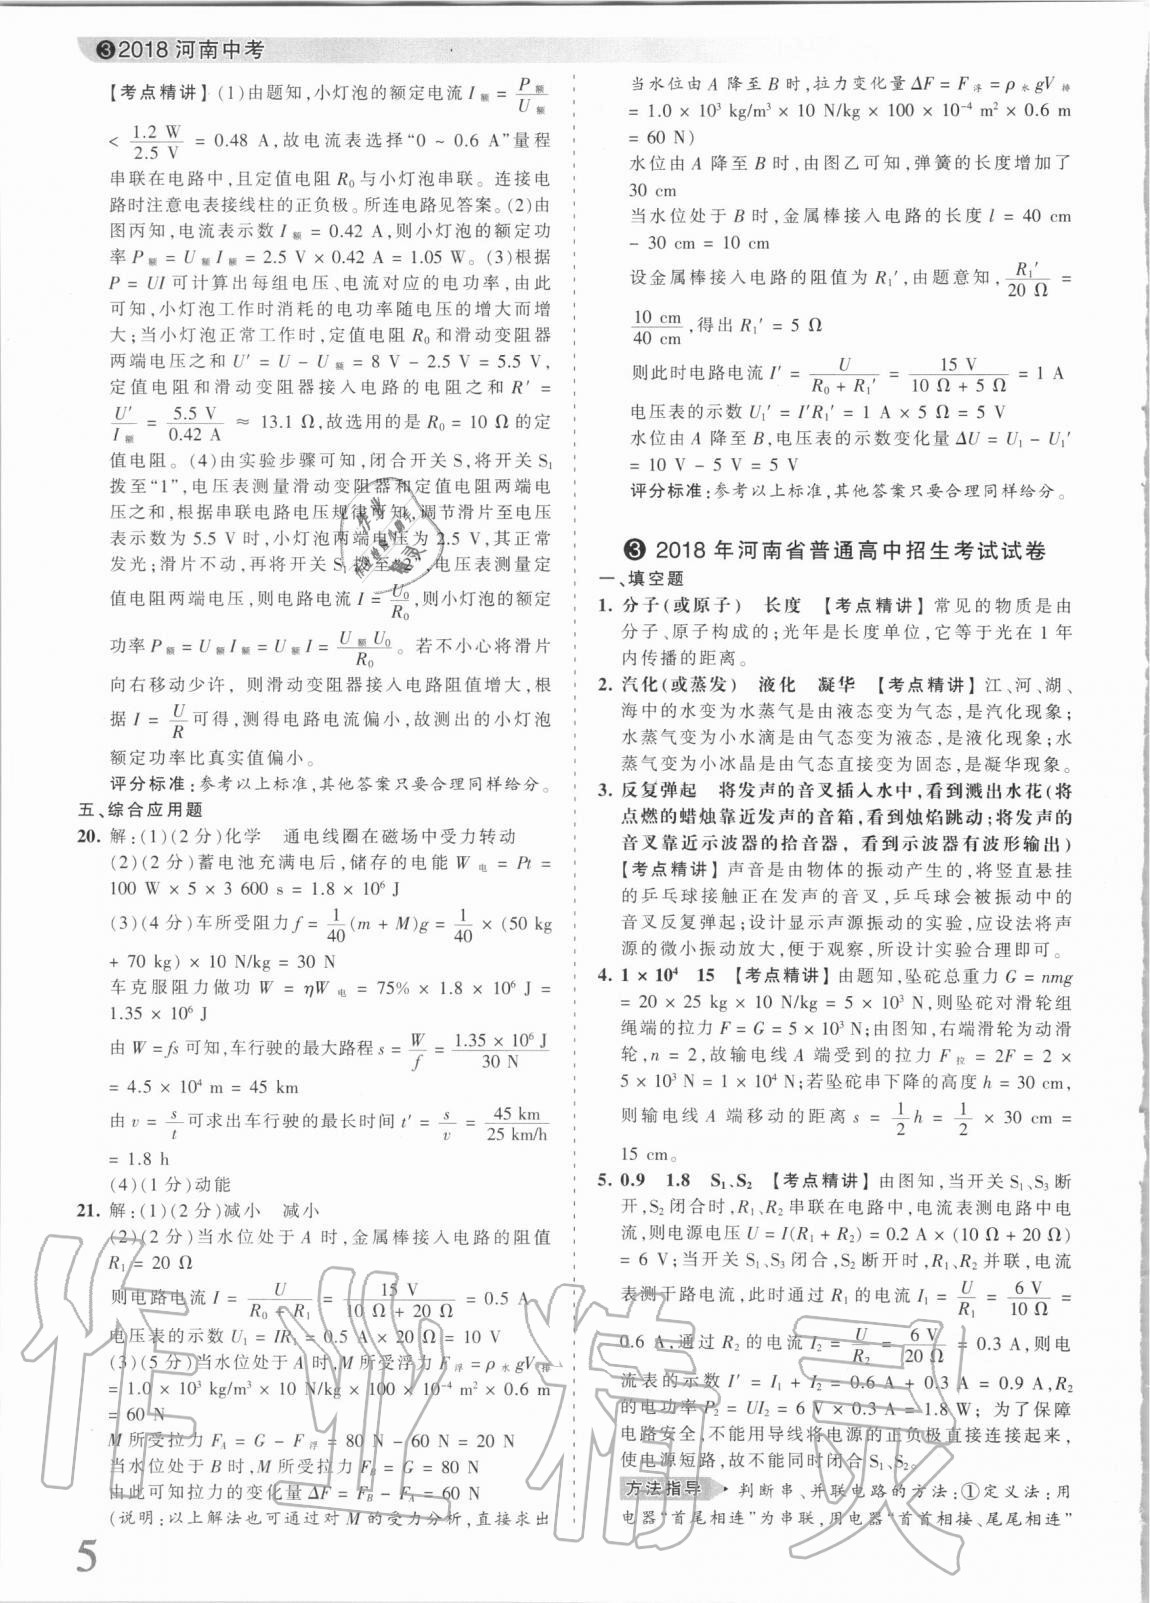 ③2018 河南中考
【考点精讲】(1)由题知,小灯泡的额定电流 I额 = P额/U额
< 1.2 W/2.5 V = 0.48 A,故电流表选择“0 ~ 0.6 A”量程
串联在电路中,且定值电阻 R₀ 与小灯泡串联。连接电
路时注意电表接线柱的正负极。所连电路见答案。(2)由
图丙知,电流表示数 I额 = 0.42 A,则小灯泡的额定功
率 P额 = U额I额 = 2.5 V × 0.42 A = 1.05 W。(3)根据
P = UI 可计算出每组电压、电流对应的电功率,由此
可知,小灯泡工作时消耗的电功率随电压的增大而增
大;当小灯泡正常工作时,定值电阻 R₀ 和滑动变阻器
两端电压之和 U′ = U - U额 = 8 V - 2.5 V = 5.5 V,
定值电阻和滑动变阻器接入电路的电阻之和 R′ =
U′/I额 = 5.5 V/0.42 A ≈ 13.1 Ω,故选用的是 R₀ = 10 Ω 的定
值电阻。(4)由实验步骤可知,闭合开关 S,将开关 S₁
拨至“1”,电压表测量滑动变阻器和定值电阻两端电
压之和,根据串联电路电压规律可知,调节滑片至电压
表示数为 5.5 V 时,小灯泡两端电压为 2.5 V,小灯泡
正常工作,再将开关 S₁ 拨至“2”,电压表测量定
值电阻两端电压,则电路电流 I = U₀/R₀,则小灯泡的额定
功率 P额 = U额I额 = U额I = U额U₀/R₀。若不小心将滑片
向右移动少许, 则滑动变阻器接入电路电阻增大,根
据 I = U/R 可得,测得电路电流偏小,故测出的小灯泡
额定功率比真实值偏小。
评分标准:参考以上标准,其他答案只要合理同样给分。
五、综合应用题
20. 解:(1)(2 分)化学 通电线圈在磁场中受力转动
(2)(2 分)蓄电池充满电后,储存的电能 W电 = Pt =
100 W × 5 × 3 600 s = 1.8 × 10⁶ J
(3)(4 分)车所受阻力 f = 1/40(m + M)g = 1/40 × (50 kg
+ 70 kg) × 10 N/kg = 30 N
车克服阻力做功 W = ηW电 = 75% × 1.8 × 10⁶ J =
1.35 × 10⁶ J
由 W = fs 可知,车行驶的最大路程 s = W/f = 1.35 × 10⁶ J/30 N
= 4.5 × 10⁴ m = 45 km
由 v = s/t 可求出车行驶的最长时间 t′ = s/v = 45 km/25 km/h
= 1.8 h
(4)(1 分)动能
21. 解:(1)(2 分)减小 减小
(2)(2 分)当水位处于 A 时,金属棒接入电路的阻值
R₁ = 20 Ω
则电路电流 I = U/R₀ + R₁ = 15 V/10 Ω + 20 Ω = 0.5 A
电压表的示数 U₁ = IR₁ = 0.5 A × 20 Ω = 10 V
(3)(5 分)当水位处于 A 时,M 所受浮力 F浮 = ρ水gV排
= 1.0 × 10³ kg/m³ × 10 N/kg × 100 × 10⁻⁴ m² × 0.6 m
= 60 N
M 所受拉力 F_A = G - F浮 = 80 N - 60 N = 20 N
当水位处于 B 时,M 所受拉力 F_B = G = 80 N
由此可知拉力的变化量 ΔF = F_B - F_A = 60 N
(说明:以上解法也可通过对 M 的受力分析,直接求出
5
当水位由 A 降至 B 时,拉力变化量 ΔF = F浮 = ρ水gV排
= 1.0 × 10³ kg/m³ × 10 N/kg × 100 × 10⁻⁴ m² × 0.6 m
= 60 N)
水位由 A 降至 B 时,由图乙可知,弹簧的长度增加了
30 cm
当水位处于 B 时,金属棒接入电路的长度 l = 40 cm
- 30 cm = 10 cm
设金属棒接入电路的阻值为 R₁′,由题意知,R₁′/20 Ω =
10 cm/40 cm,得出 R₁′ = 5 Ω
则此时电路电流 I′ = U/R₀ + R₁′ = 15 V/10 Ω + 5 Ω = 1 A
电压表的示数 U₁′ = I′R₁′ = 1 A × 5 Ω = 5 V
水位由 A 降至 B,电压表的示数变化量 ΔU = U₁ - U₁′
= 10 V - 5 V = 5 V
评分标准:参考以上标准,其他答案只要合理同样给分。
③ 2018 年河南省普通高中招生考试试卷
一、填空题
1. 分子(或原子) 长度 【考点精讲】常见的物质是由
分子、原子构成的;光年是长度单位,它等于光在 1 年
内传播的距离。
2. 汽化(或蒸发) 液化 凝华 【考点精讲】江、河、湖、
海中的水变为水蒸气是由液态变为气态,是汽化现象;
水蒸气变为小水滴是由气态变为液态,是液化现象;水
蒸气变为小冰晶是由气态直接变为固态,是凝华现象。
3. 反复弹起 将发声的音叉插入水中,看到溅出水花(将
点燃的蜡烛靠近发声的音箱,看到烛焰跳动;将发声的
音叉靠近示波器的拾音器, 看到示波器有波形输出)
【考点精讲】声音是由物体的振动产生的,将竖直悬挂
的乒乓球接触正在发声的音叉,乒乓球会被振动中的
音叉反复弹起;设计显示声源振动的实验,应设法将声
源的微小振动放大,便于观察,所设计实验合理即可。
4. 1 × 10⁴ 15 【考点精讲】由题知,坠砣总重力 G = nmg
= 20 × 25 kg × 10 N/kg = 5 × 10³ N,则坠砣对滑轮组
绳端的拉力 F = G = 5 × 10³ N;由图知,右端滑轮为动滑
轮,n = 2,故输电线 A 端受到的拉力 F拉 = 2F = 2 ×
5 × 10³ N = 1 × 10⁴ N;若坠砣串下降的高度 h = 30 cm,
则输电线 A 端移动的距离 s = 1/2 h = 1/2 × 30 cm =
15 cm。
5. 0.9 1.8 S₁、S₂ 【考点精讲】由图知,当开关 S₁、S₃ 断
开,S₂ 闭合时,R₁、R₂ 串联在电路中,电流表测电路中电
流,则电源电压 U = I(R₁ + R₂) = 0.2 A × (10 Ω + 20 Ω)
= 6 V;当开关 S₁、S₃ 闭合,S₂ 断开时,R₁、R₂ 并联,电流
表测干路电流,此时通过 R₁ 的电流 I₁ = U/R₁ = 6 V/10 Ω =
0.6 A,通过 R₂ 的电流 I₂ = U/R₂ = 6 V/20 Ω = 0.3 A,则电
流表的示数 I′ = I₁ + I₂ = 0.6 A + 0.3 A = 0.9 A,R₂
的电功率 P₂ = UI₂ = 6 V × 0.3 A = 1.8 W; 为了保障
电路安全,不能用导线将电源的正负极直接连接起来,
使电源短路,故不能同时闭合 S₁、S₂。
方法指导 ▸ 判断串、并联电路的方法:①定义法:用
电器“首尾相连”为串联,用电器“首首相接、尾尾相连”
作业精灵